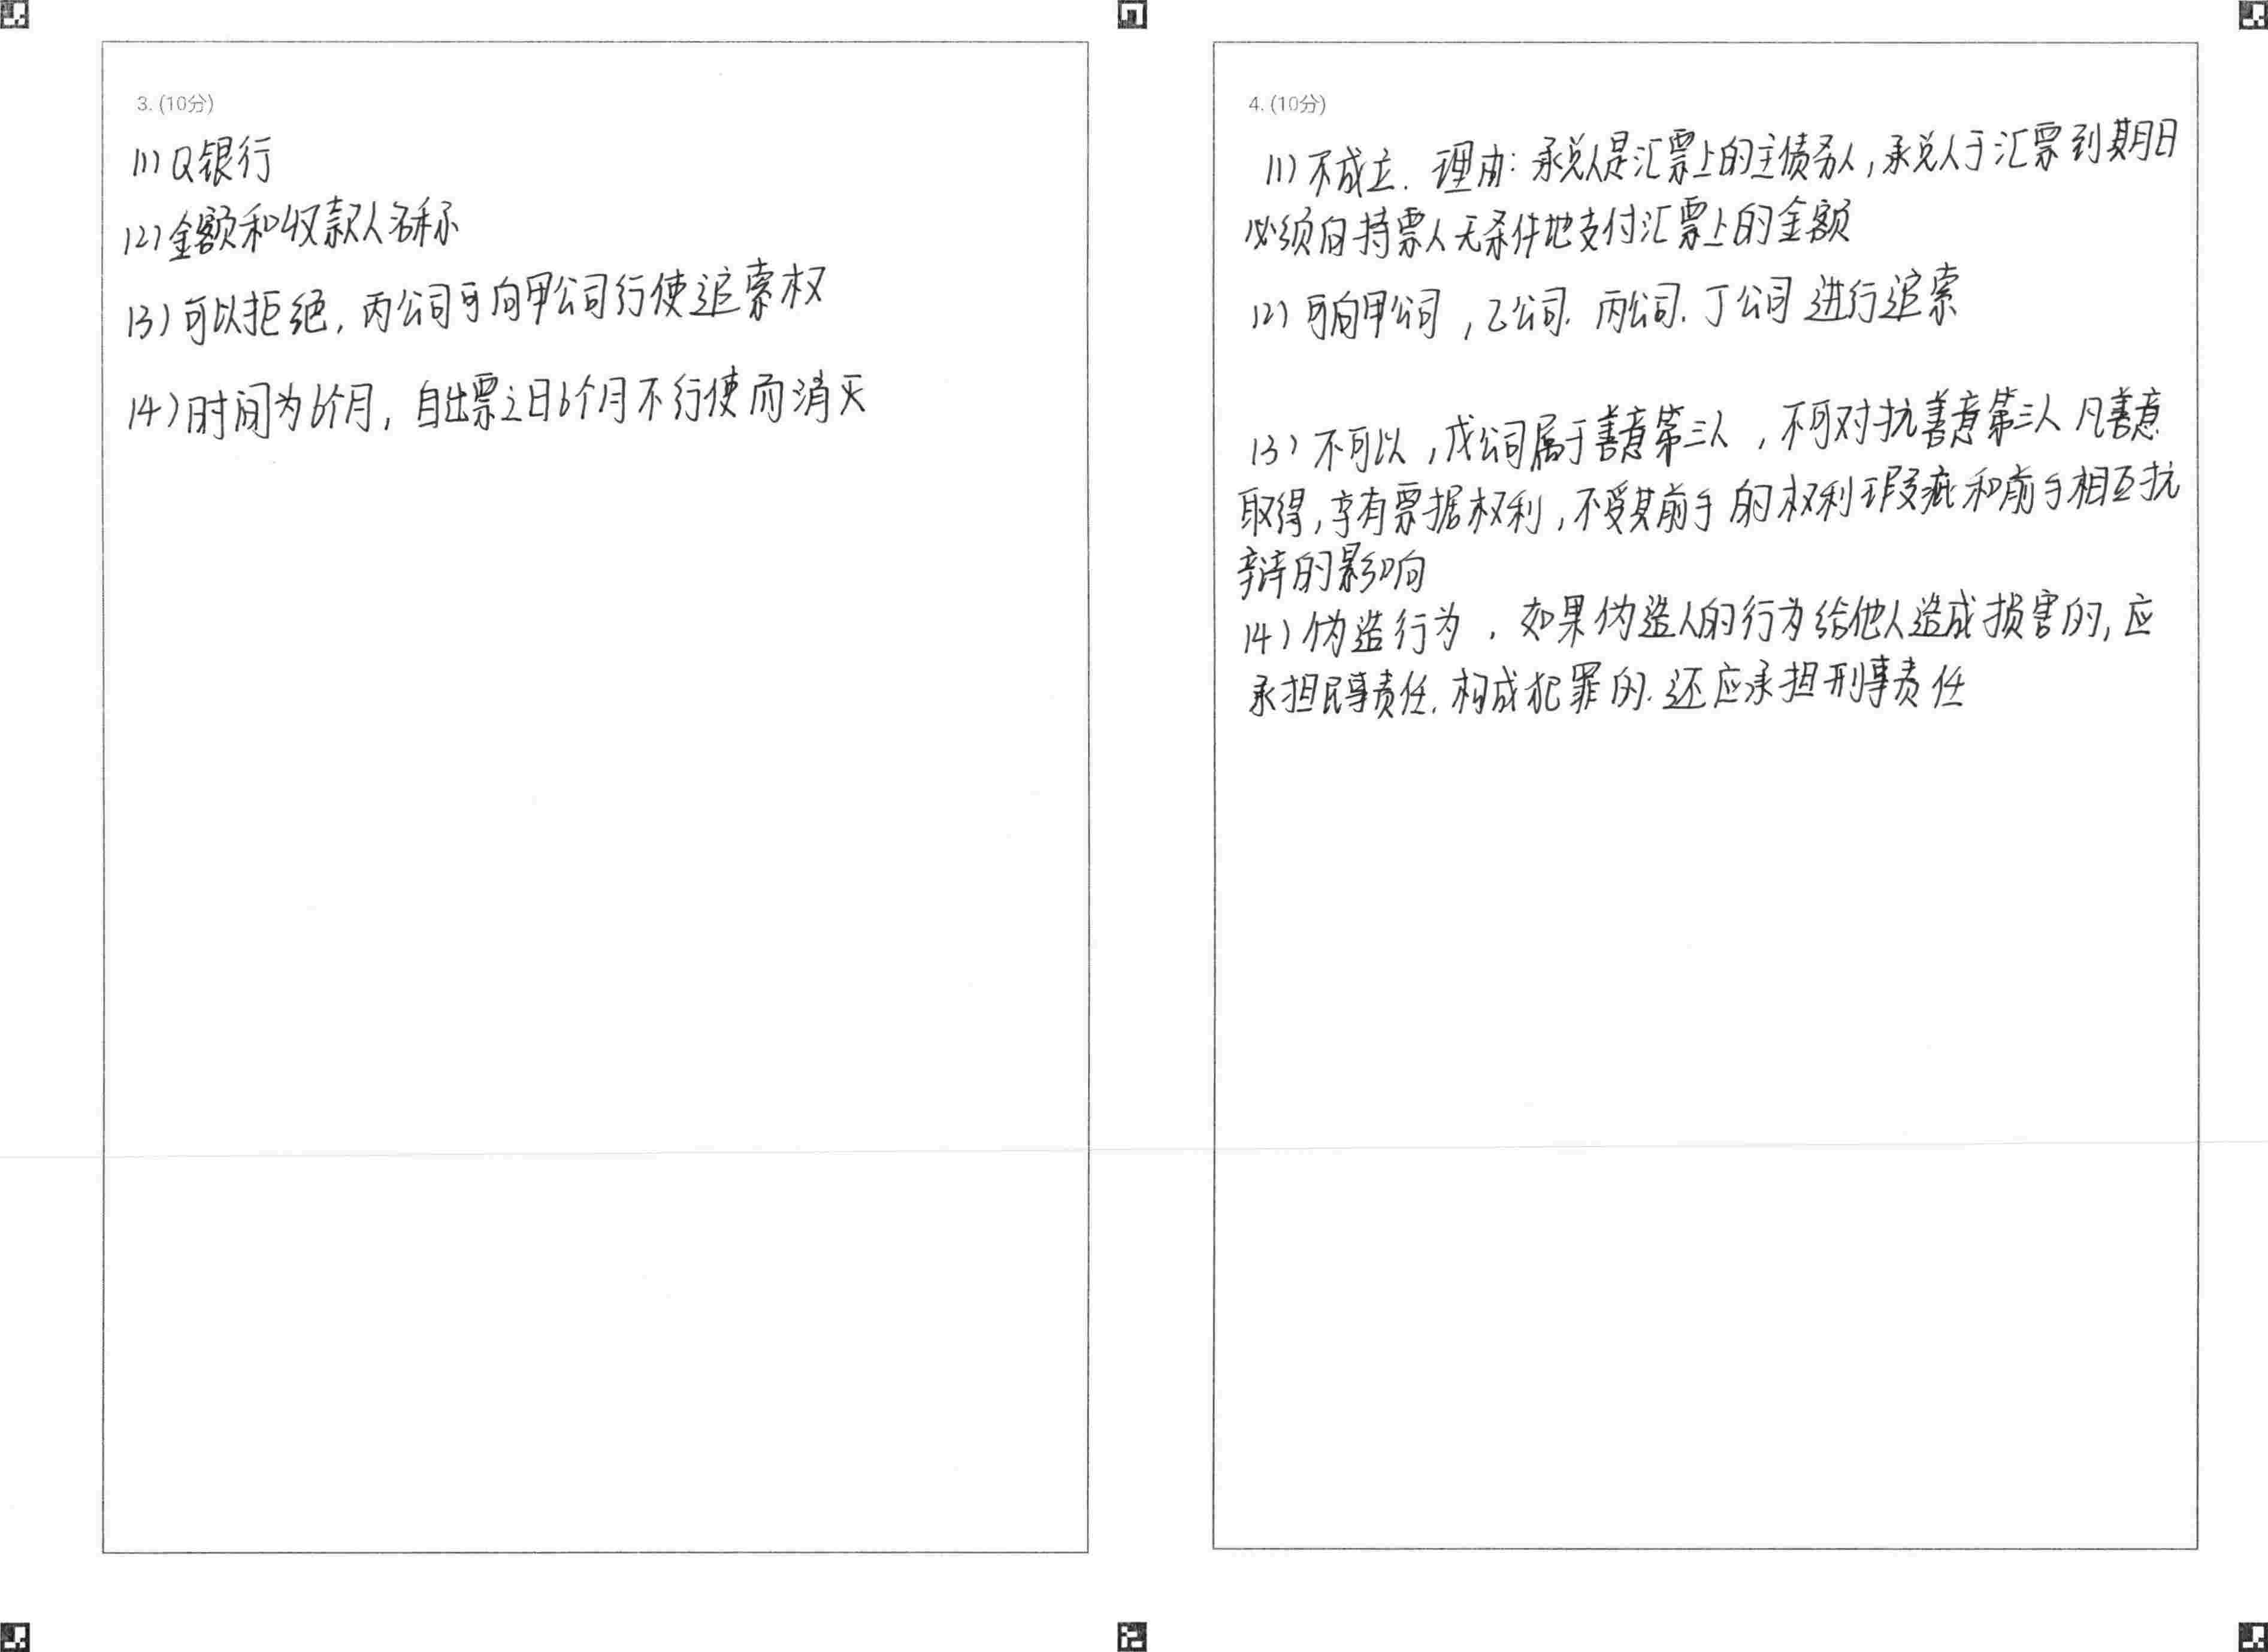 3. (10分)
(1) Q银行
(2) 金额和收款人名称
(3) 可以拒绝, 丙公司可向甲公司行使追索权
(4) 时间为6个月, 自出票之日6个月不行使而消灭
4. (10分)
(1) 不成立. 理由: 承兑人是汇票上的主债务人, 承兑人于汇票到期日
必须向持票人无条件地支付汇票上的金额
(2) 可向甲公司, 乙公司. 丙公司. 丁公司 进行追索
(3) 不可以, 戊公司属于善意第三人, 不可对抗善意第三人 凡善意
取得, 享有票据权利, 不受其前手的权利瑕疵和前手相互抗
辩的影响
(4) 伪造行为. 如果伪造人的行为给他人造成损害的, 应
承担民事责任. 构成犯罪的. 还应承担刑事责任